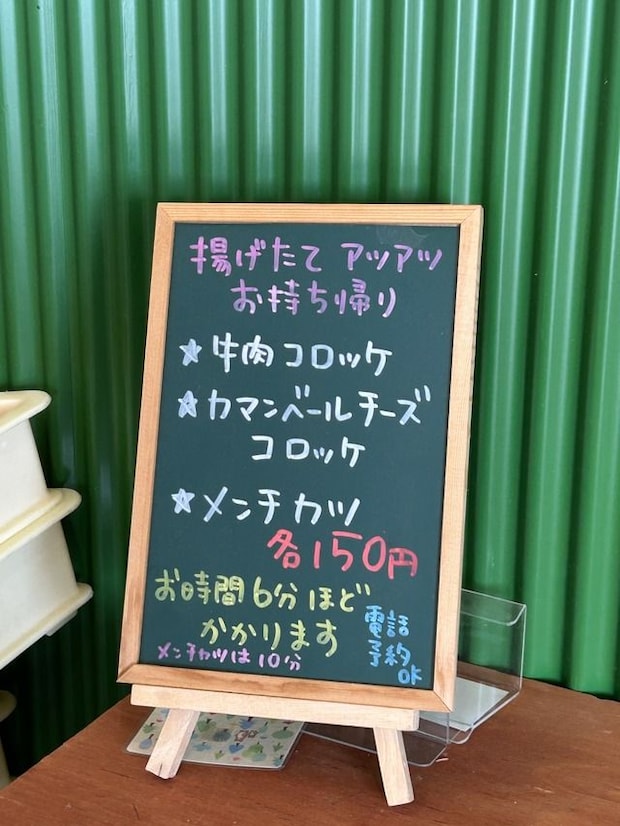 揚げたて アツアツ
お持ち帰り
☆牛肉コロッケ
☆カマンベールチーズ
コロッケ
☆メンチカツ
各150円
お時間6分ほど
かかります
メンチカツは10分
電話
予約
OK